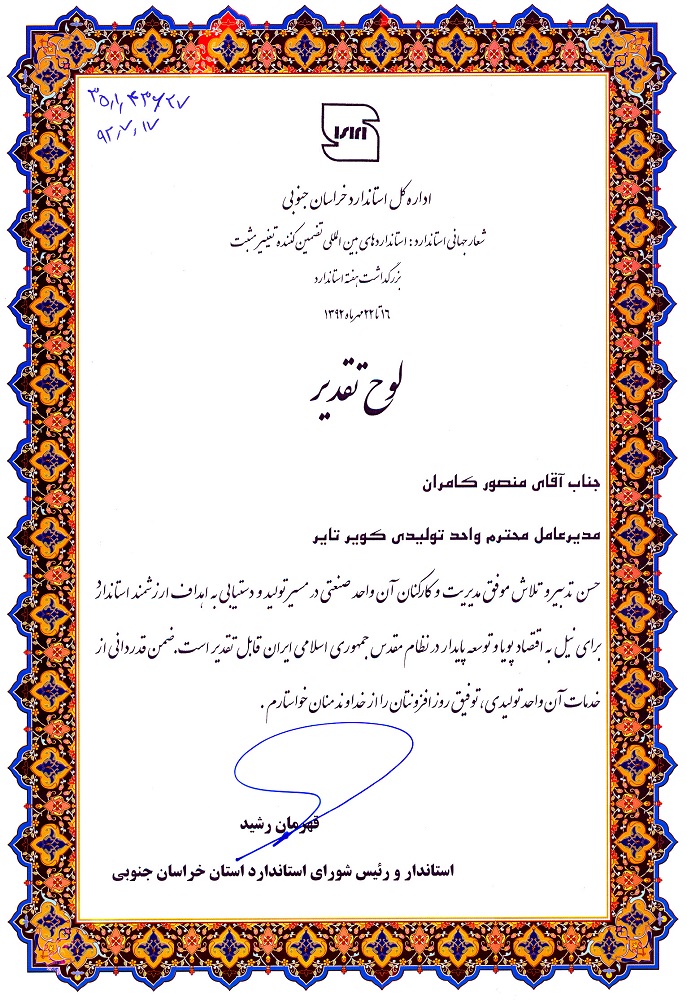 ۹۲,۷,۱۷
ISIRI
اداره کل استاندارد خراسان جنوبی
شعار جهانی استاندارد : استانداردهای بین المللی تضمین کننده تغییر مثبت
بزرگداشت هفته استاندارد
۱۶ تا ۲۲ مهرماه ۱۳۹۲
لوح تقدیر
جناب آقای منصور کامران
مدیرعامل محترم واحد تولیدی کویر تایر
حسن تدبیر و تلاش موفق مدیریت و کارکنان آن واحد صنعتی در مسیر تولید و دستیابی به اهداف ارزشمند استاندارد و
برای نیل به اقتصاد پویا و توسعه پایدار در نظام مقدس جمهوری اسلامی ایران قابل تقدیر است. ضمن قدردانی از
خدمات آن واحد تولیدی، توفیق روز افزونتان را از خداوند منان خواستارم .
قهرمان رشید
استاندار و رئیس شورای استاندارد استان خراسان جنوبی